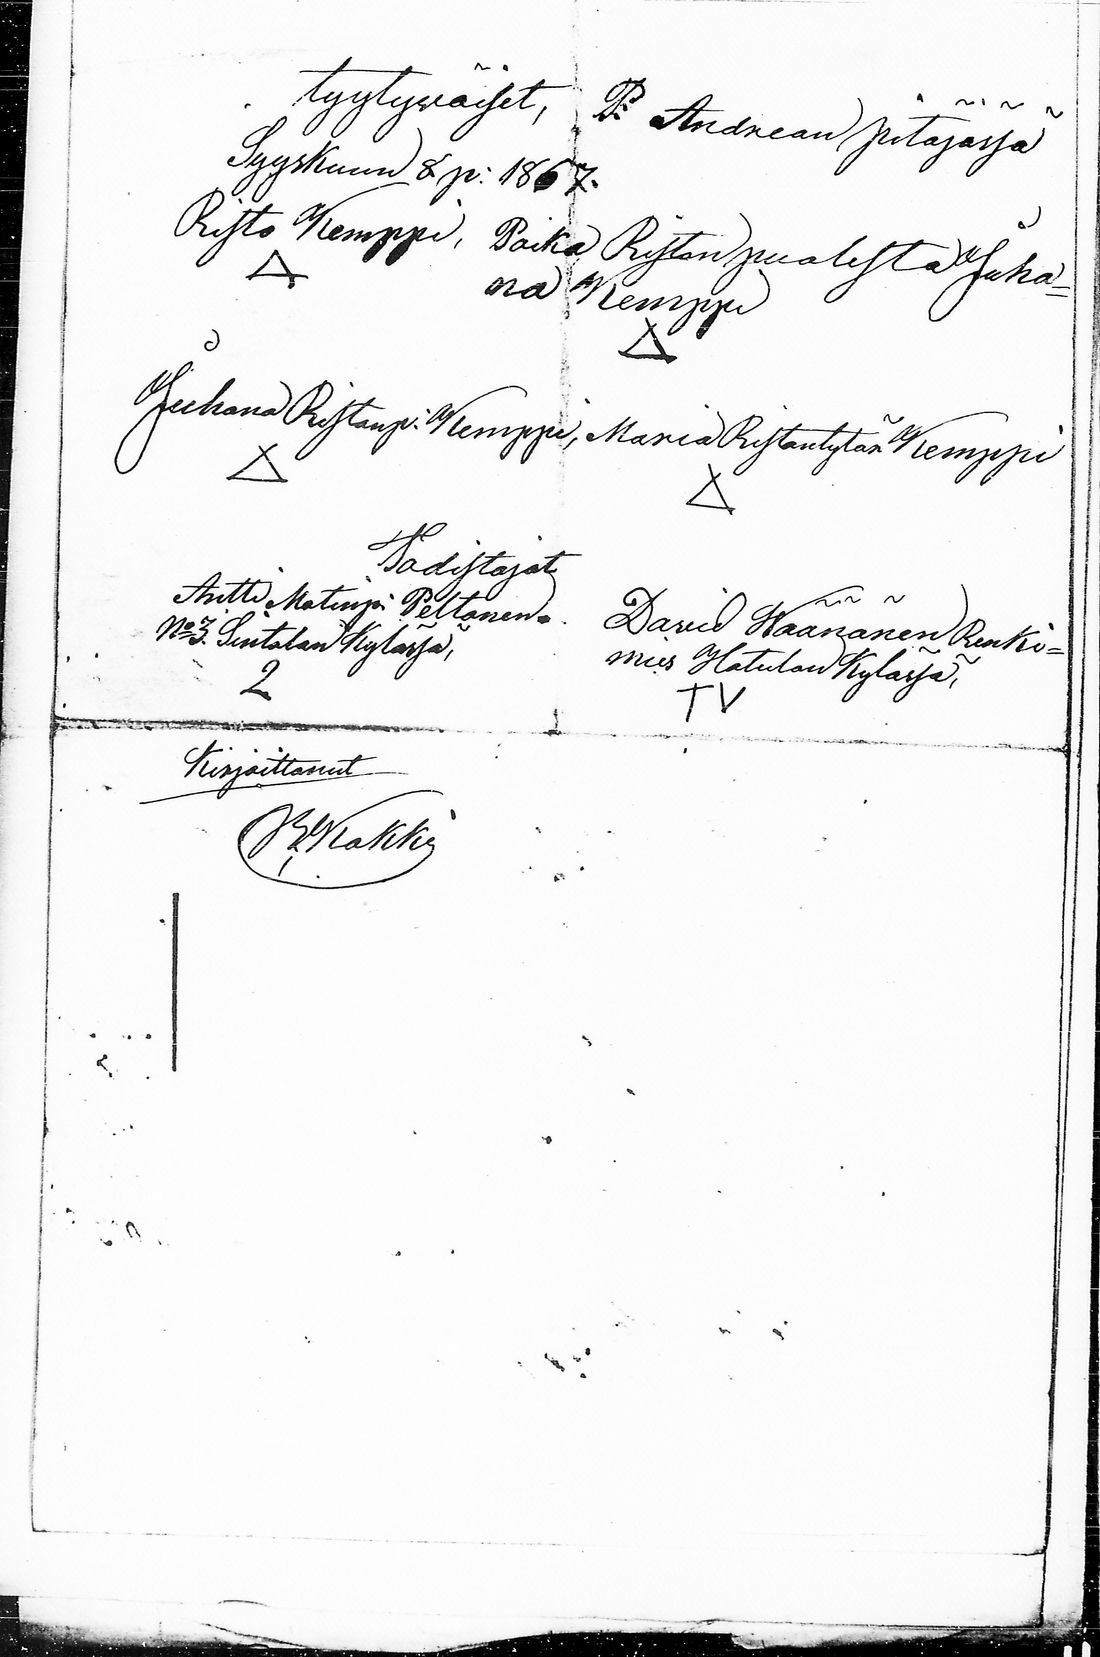 tyytywäiset, P: Andrean pitäjässä
Syyskuun 8 p: 1867.
Risto Kemppi, Poika Ristan puolesta Juha=
na Kemppi
Juhana Ristanp: Kemppi, Maria Ristantytär Kemppi
Todistajat
Antti Matinp: Peltonen.
No 3. Sintolan Kylässä,
2
David Wäänänen Renki=
mies Hatulan Kylässä,
TV
Kirjoittanut
Kokki